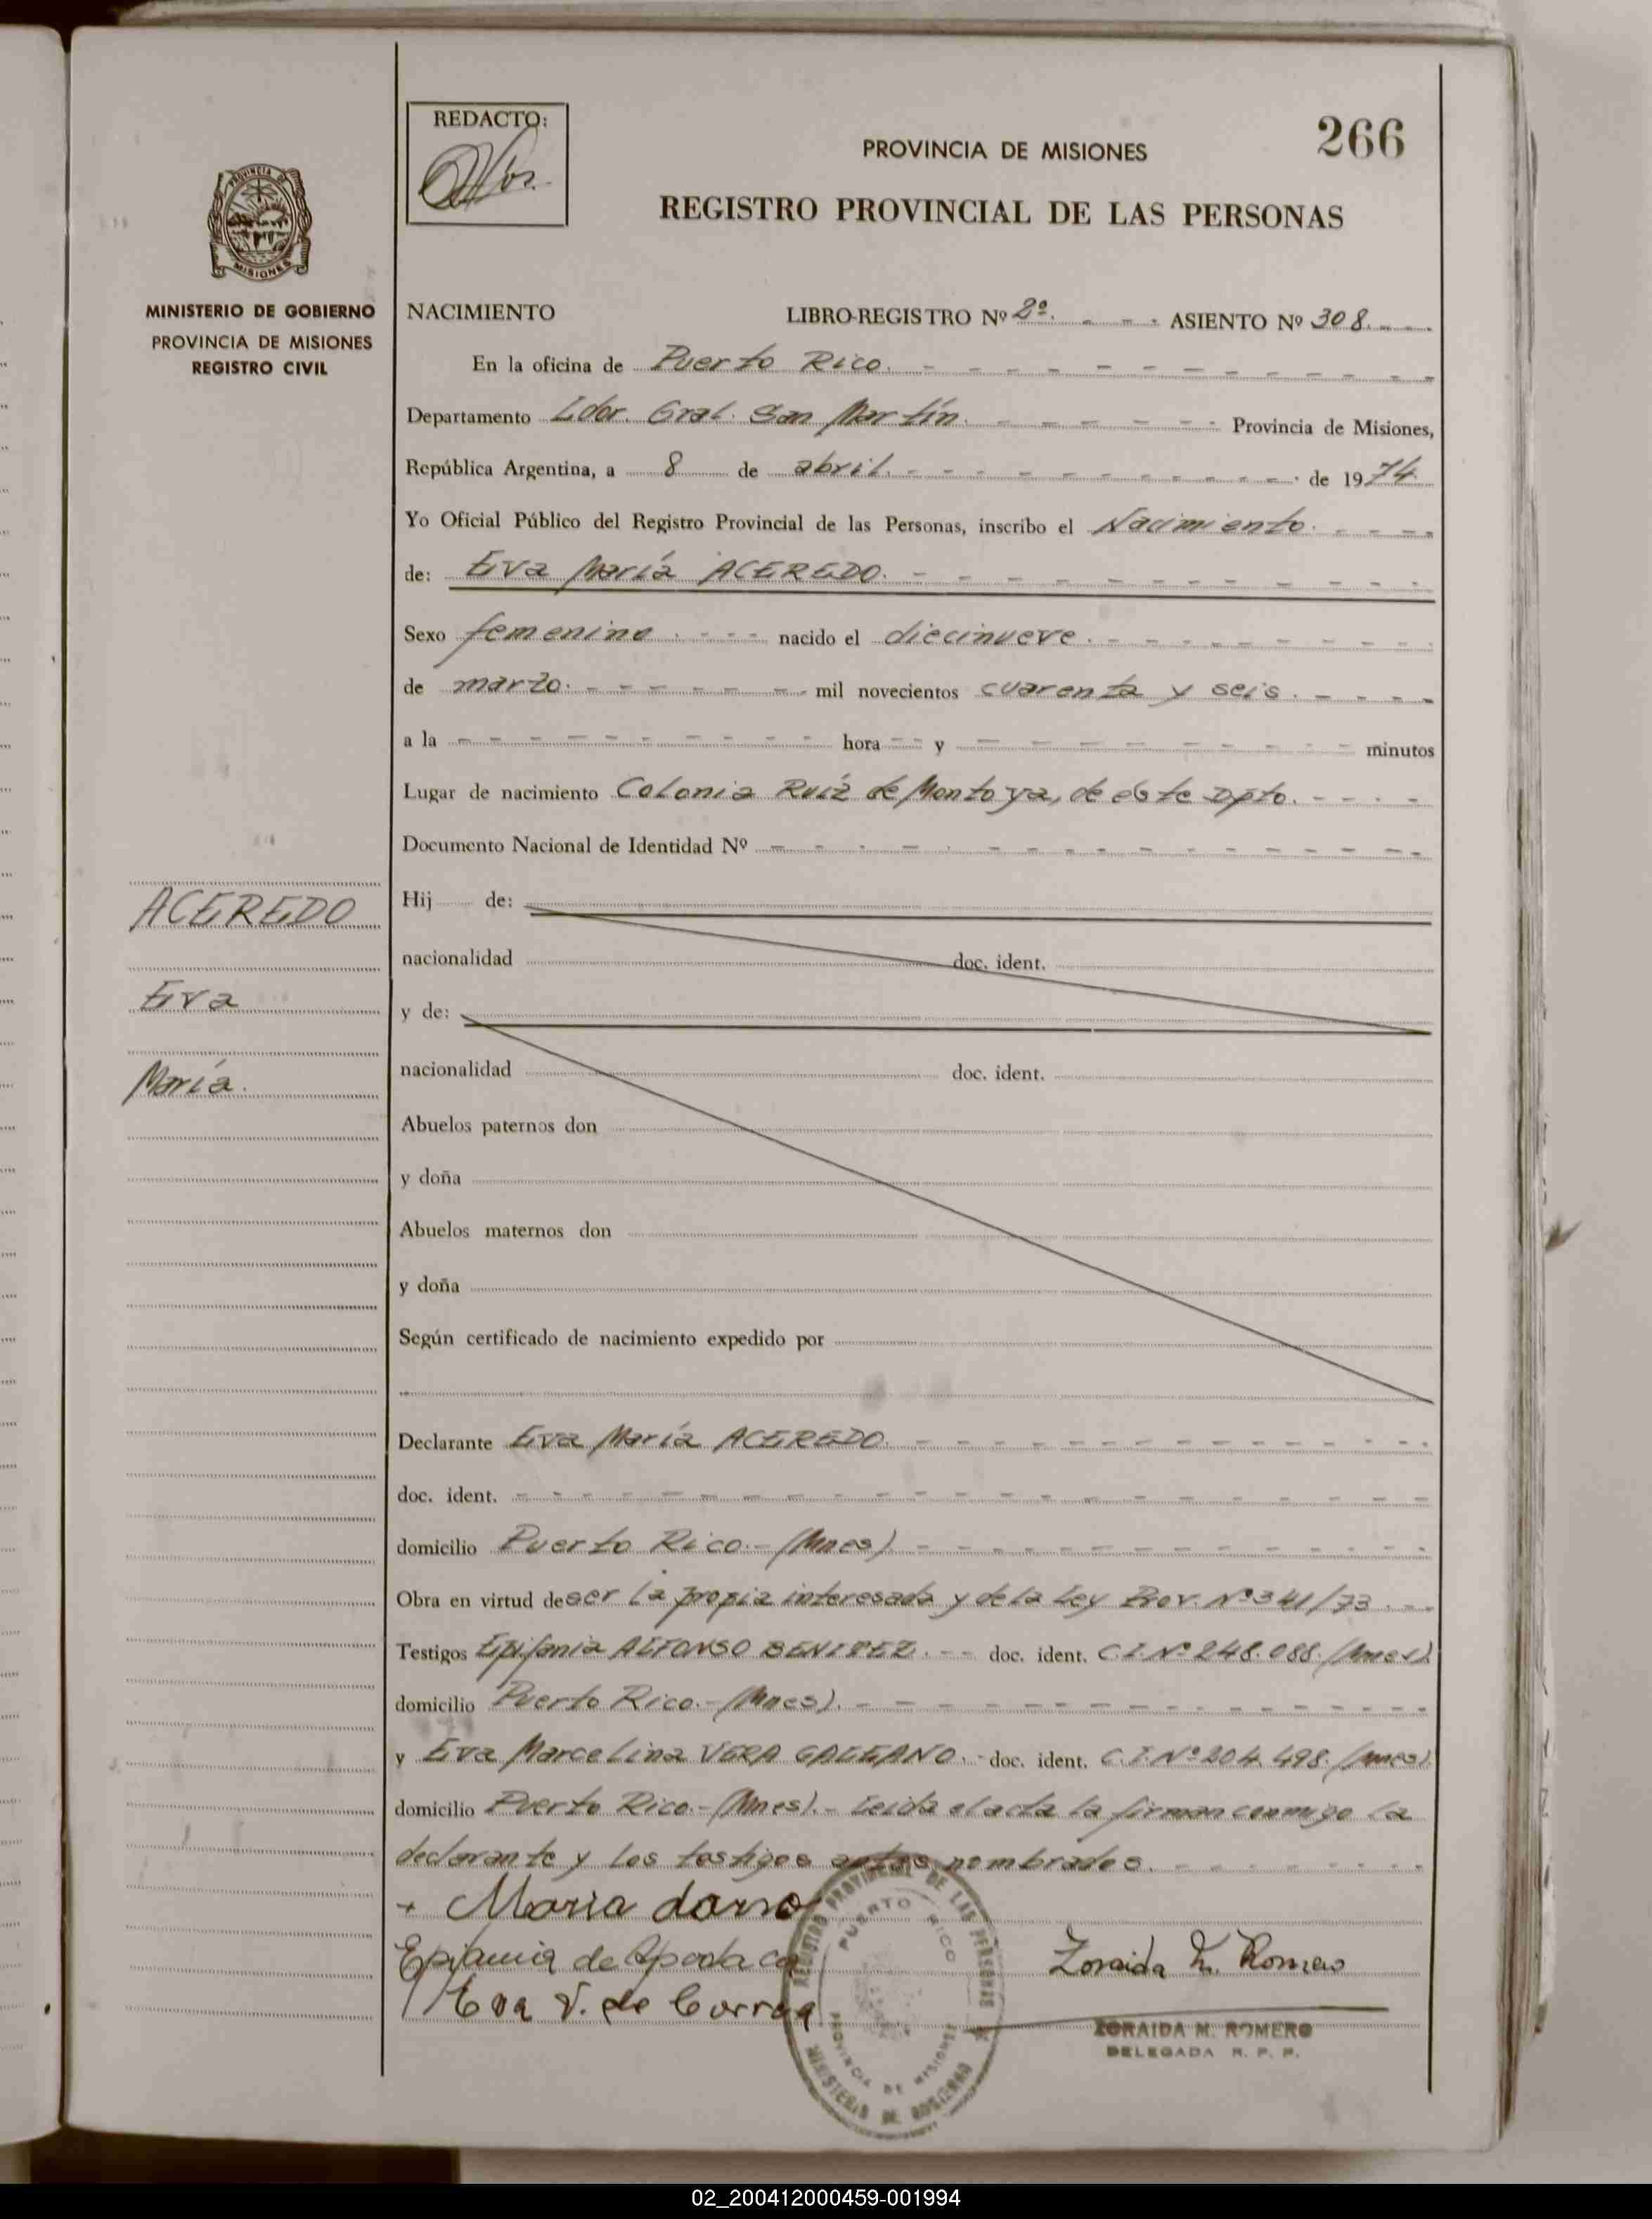 REDACTO:
266
PROVINCIA DE MISIONES
REGISTRO PROVINCIAL DE LAS PERSONAS
PROVINCIA DE
MISIONES
MINISTERIO DE GOBIERNO
PROVINCIA DE MISIONES
REGISTRO CIVIL
NACIMIENTO LIBRO-REGISTRO Nº 2º. ASIENTO Nº 308.
En la oficina de Puerto Rico.
Departamento Ldor. Gral. San Martín. Provincia de Misiones,
República Argentina, a 8 de abril. de 1974.
Yo Oficial Público del Registro Provincial de las Personas, inscribo el Nacimiento.
de: Eva María ACEREDO.
Sexo femenino. nacido el diecinueve.
de marzo. mil novecientos cuarenta y seis.
a la hora y minutos
Lugar de nacimiento Colonia Ruíz de Montoya, de este Dpto.
Documento Nacional de Identidad Nº
ACEREDO
Eva
María.
Hij de:
nacionalidad doc. ident.
y de:
nacionalidad doc. ident.
Abuelos paternos don
y doña
Abuelos maternos don
y doña
Según certificado de nacimiento expedido por
Declarante Eva María ACEREDO.
doc. ident.
domicilio Puerto Rico.-(Mnes)
Obra en virtud de ser la propia interesada y de la Ley Prov. Nº 341/73.
Testigos Epifania ALFONSO BENITEZ. doc. ident. C.I. Nº 248.088. (Mnes).
domicilio Puerto Rico.-(Mnes).
y Eva Marcelina VERA GALEANO.- doc. ident. C.I. Nº 204.498. (Mnes).
domicilio Puerto Rico.-(Mnes).- Leída el acta la firman conmigo la
declarante y los testigos antes nombrados.
+ Maria
Epifania de Apodaca
Eva V. de Correa
Zoraida M. Romero
REGISTRO PROVINCIAL DE LAS PERSONAS
PUERTO RICO
PROVINCIA DE MISIONES
MINISTERIO DE GOBIERNO
ZORAIDA M. ROMERO
DELEGADA R. P. P.
02_200412000459-001994